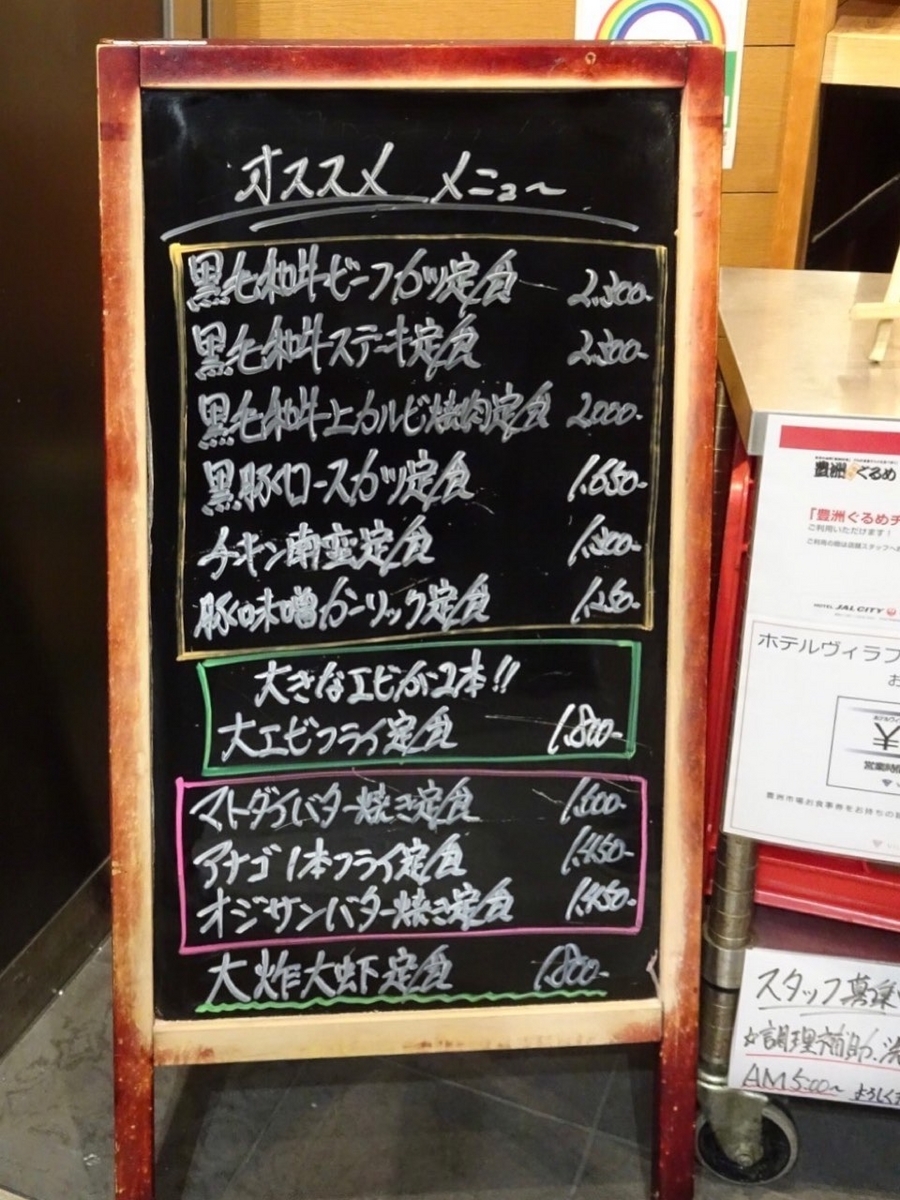 オススメ メニュー
黒毛和牛ビーフカツ定食 2,300-
黒毛和牛ステーキ定食 2,300-
黒毛和牛上カルビ焼肉定食 2000-
黒豚ロースカツ定食 1,650-
チキン南蛮定食 1,300-
豚味噌ガーリック定食 1,250-
大きなエビが2本!!
大エビフライ定食 1,800-
マトダイバター焼き定食 1,600-
アナゴ1本フライ定食 1,450-
オジサンバター焼き定食 1,450-
大炸大虾定食 1,800-
豊洲ぐるめ
「豊洲ぐるめチ
ご利用いただけます!
HOTEL JAL CITY
ホテルヴィラフ
お
¥
営業時間
豊洲市場お食事券をお持ちの
スタッフ募集
調理補助、洗
AM5:00〜 よろしく